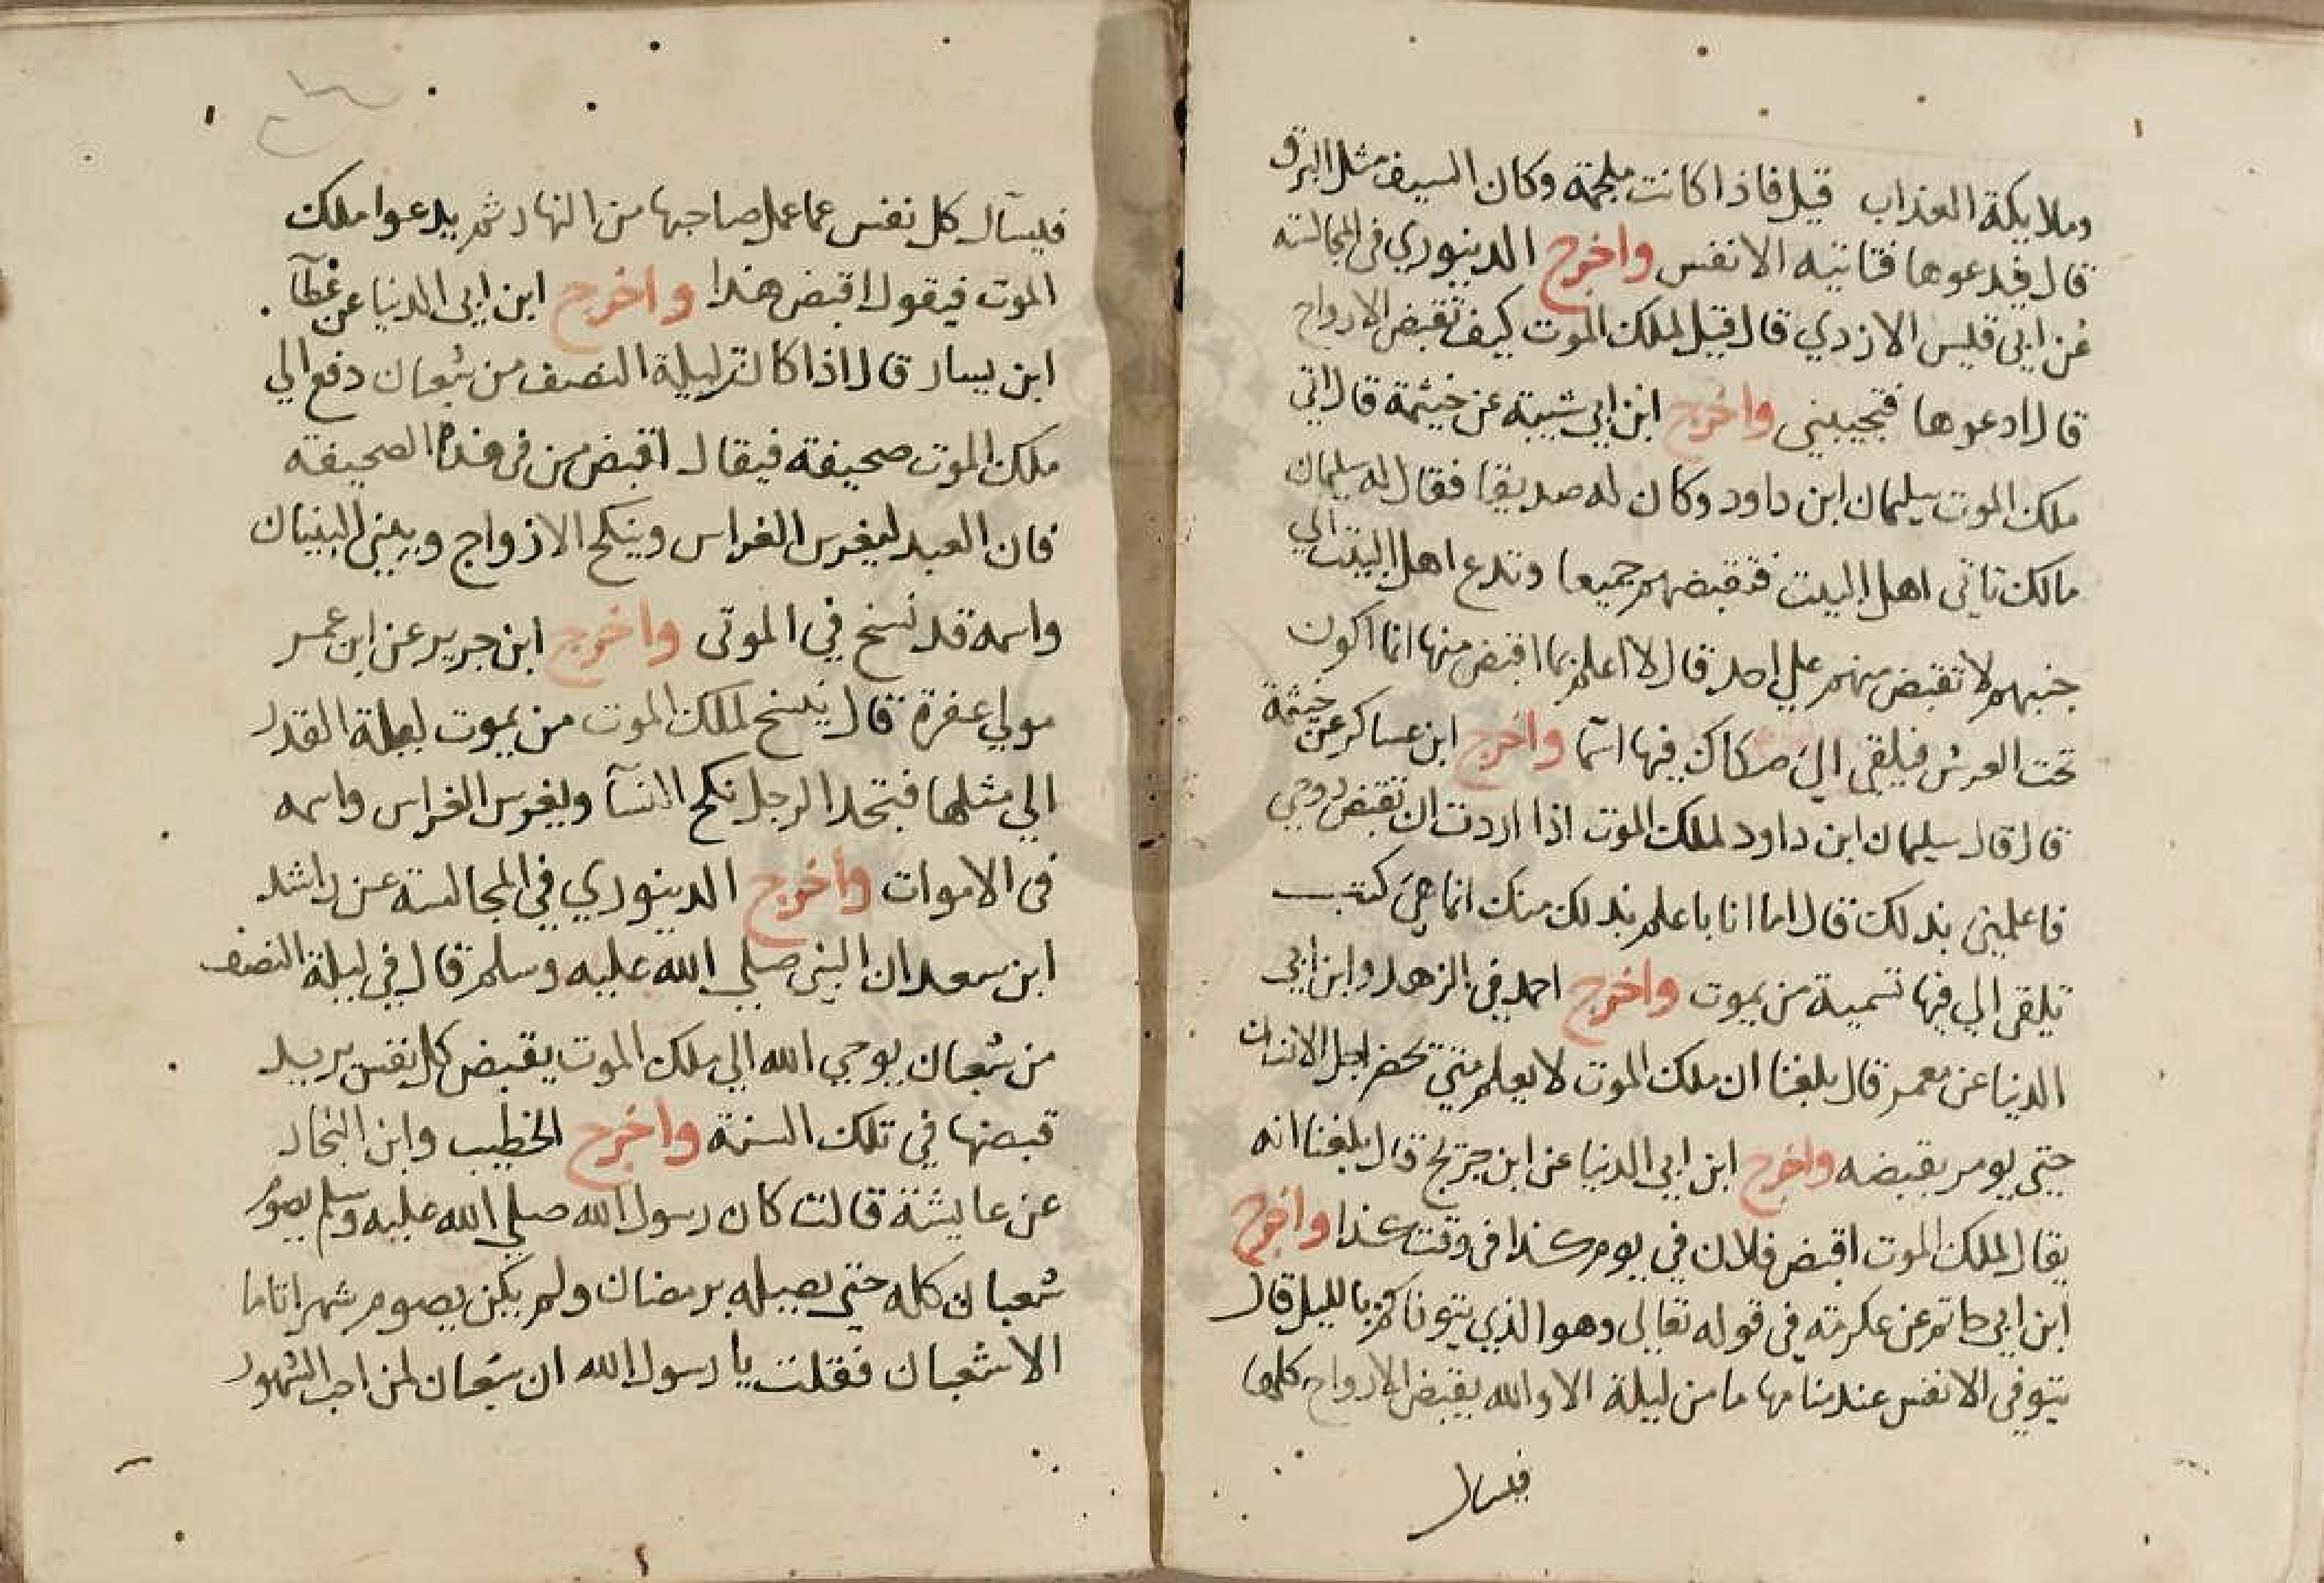 وملايكة العذاب قيل فاذا كانت ملحمة وكان السيف مثل البرق
قال فيدعوها فتاتيه الانفس واخرج الدينوري في المجالسة
عن ابي قليس الازدي قال قيل لملك الموت كيف تقبض الارواح
قال ادعوها فتجيبني واخرج ابن ابي شيبة عن خيثمة قال اتي
ملك الموت سليمان ابن داود وكان له صديقا فقال له سليمان
مالك تاتي اهل البيت فتقبضهم جميعا وتدع اهل البيت الي
جنبهم لا تقبض منهم علي احد قال لا اعلم بما اقبض منها انما اكون
تحت العرش فيلقي الي صكاك فيها اسما واخرج ابن عساكر عن خيثمة
قال قال سليمان ابن داود لملك الموت اذا اردت ان تقبض روحي
فاعلمني بذلك قال اما انا باعلم بذلك منك انما هي كتب
تلقي الي فيها تسمية من يموت واخرج احمد في الزهد وابن ابي
الدنيا عن معمر قال بلغنا ان ملك الموت لا يعلم متي تحضر اجل الانسان
حتي يومر بقبضه واخرج ابن ابي الدنيا عن ابن جريج قال بلغنا انه
يقال لملك الموت اقبض فلان في يوم كذا في وقت كذا واخرج
ابن ابي حاتم عن عكرمة في قوله تعالي وهو الذي يتوفاكم بالليل قال
يتوفي الانفس عند منامها ما من ليلة الا والله يقبض الارواح كلها
فيسال
فيسآل كل نفس عما عمل صاحبها من النهار ثم يدعوا ملك
الموت فيقول اقبض هذا واخرج ابن ابي الدنيا عن عطآ
ابن يسار قال اذا كانت ليلة النصف من شعبان دفع الي
ملك الموت صحيفة فيقال اقبض من في هذه الصحيفة
فان العبد ليغرس الغراس وينكح الازواج ويبني البنيان
واسمه قد نسخ في الموتي واخرج ابن جرير عن ابن عمر
مولي عفرة قال ينسخ لملك الموت من يموت ليلة القدر
الي مثلها فتجد الرجل نكح النسآ ويغرس الغراس واسمه
في الاموات واخرج الدينوري في المجالسة عن راشد
ابن سعد ان النبي صلي الله عليه وسلم قال في ليلة النصف
من شعبان يوحي الله الي ملك الموت يقبض كل نفس يريد
قبضها في تلك السنة واخرج الخطيب وابن النجار
عن عايشة قالت كان رسول الله صلي الله عليه وسلم يصوم
شعبان كله حتي يصيله برمضان ولم يكن يصوم شهرا تاما
الا شعبان فقلت يا رسول الله ان شعبان لمن احب الشهور